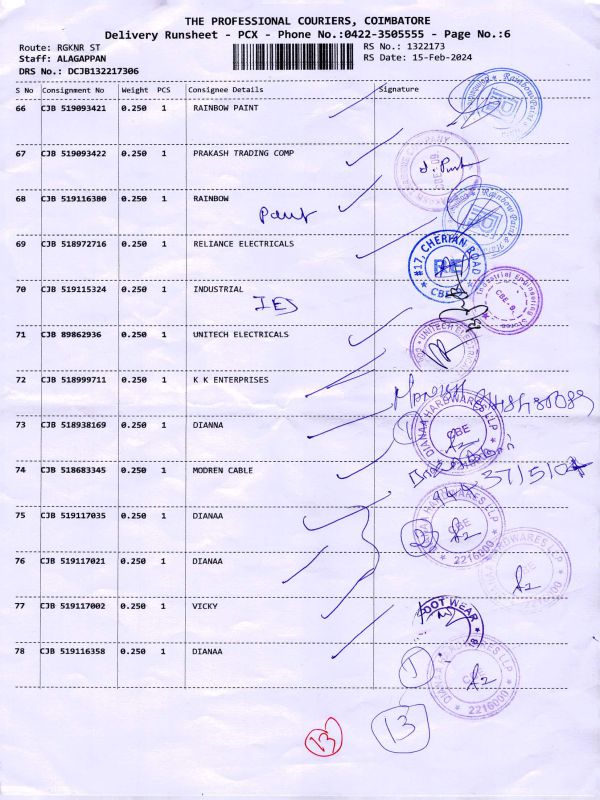 THE PROFESSIONAL COURIERS, COIMBATORE
Delivery Runsheet - PCX - Phone No.:0422-3505555 - Page No.:6
Route: RGKNR ST
RS No.: 1322173
Staff: ALAGAPPAN
RS Date: 15-Feb-2024
DRS No.: DCJB132217306
S No Consignment No Weight PCS Consignee Details Signature
66 CJB 519093421 0.250 1 RAINBOW PAINT
67 CJB 519093422 0.250 1 PRAKASH TRADING COMP
68 CJB 519116380 0.250 1 RAINBOW
69 CJB 518972716 0.250 1 RELIANCE ELECTRICALS
#17, CHERIAN ROAD
CBE
70 CJB 519115324 0.250 1 INDUSTRIAL
IES
Industrial Engineering Stores
CBE-
71 CJB 89862936 0.250 1 UNITECH ELECTRICALS
UNITECH
72 CJB 518999711 0.250 1 K K ENTERPRISES
73 CJB 518938169 0.250 1 DIANNA
DIANAA HARDWARES LLP
CBE
74 CJB 518683345 0.250 1 MODREN CABLE
75 CJB 519117035 0.250 1 DIANAA
2
DIANAA HARDWARES LLP
CBE
2216000
76 CJB 519117021 0.250 1 DIANAA
77 CJB 519117002 0.250 1 VICKY
FOOT WEAR
78 CJB 519116358 0.250 1 DIANAA
1
DIANAA HARDWARES LLP
CBE
2216000
13
13